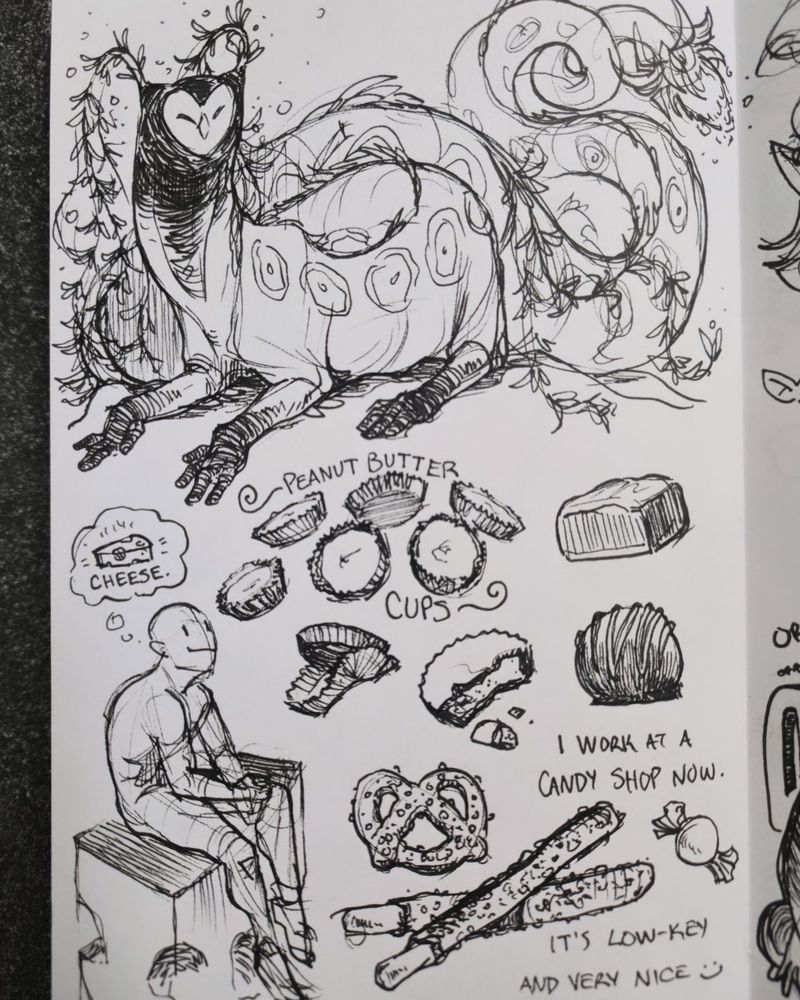 PEANUT BUTTER
CUPS
CHEESE.
I WORK AT A
CANDY SHOP NOW.
IT'S LOW-KEY
AND VERY NICE :)